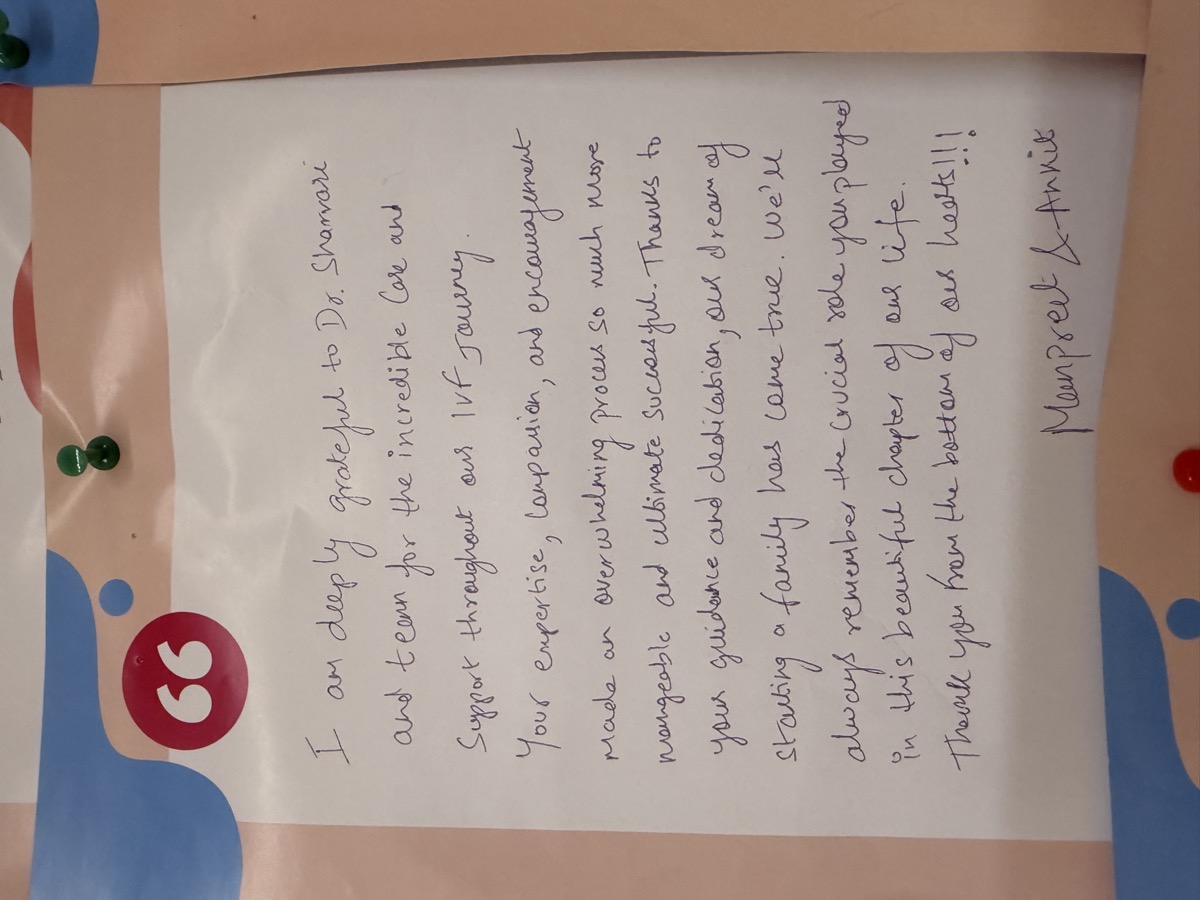 I am deeply grateful to Dr. Sharvari
and team for the incredible Care and
Support throughout our IVF Journey.
Your expertise, compassion, and encouragement
made an overwhelming process so much more
mangeable and ultimate successful. Thanks to
your guidance and dedication, our dream of
starting a family has come true. We'll
always remember the crucial role you played
in this beautiful chapter of our life.
Thank you from the bottom of our hearts!!!
Manpreet & Annie